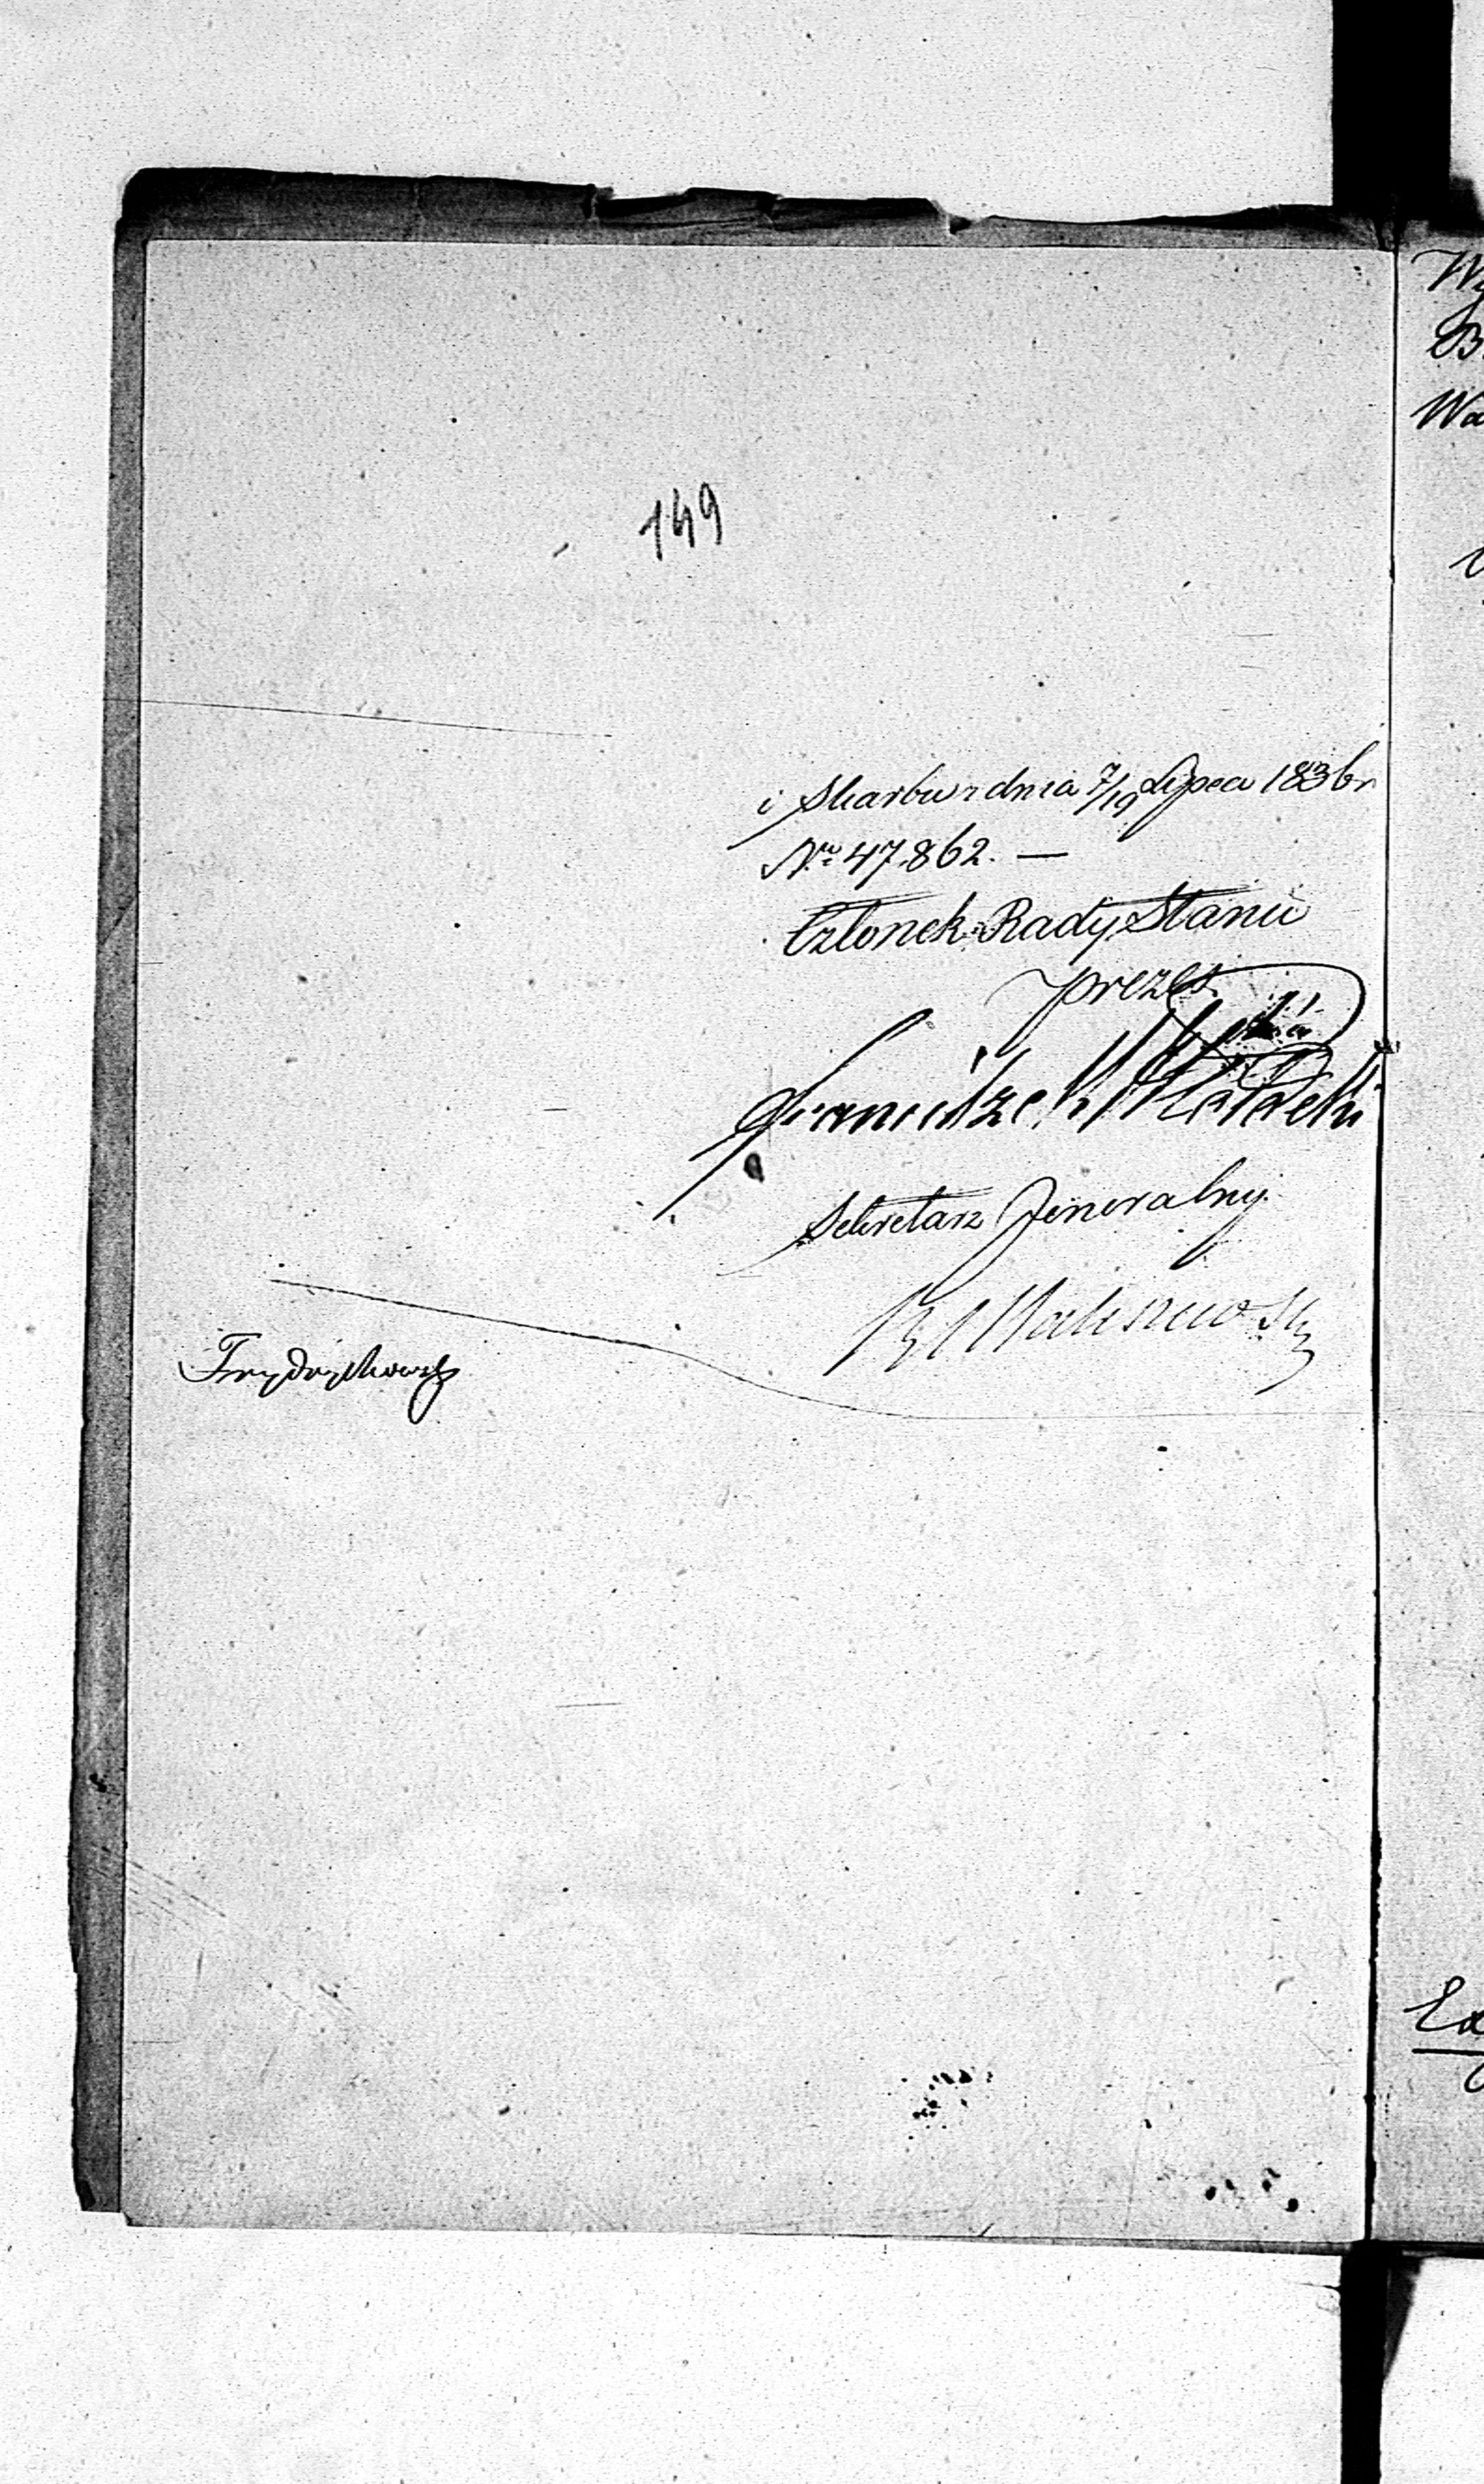 149
i Skarbu z dnia 7/19 Lipca 1836 r.
Nru 47,862. —
Członek Rady Stanu
Prezes
Franciszek Potocki
Sekretarz Jeneralny
Frydrychowicz
Wa
Ex